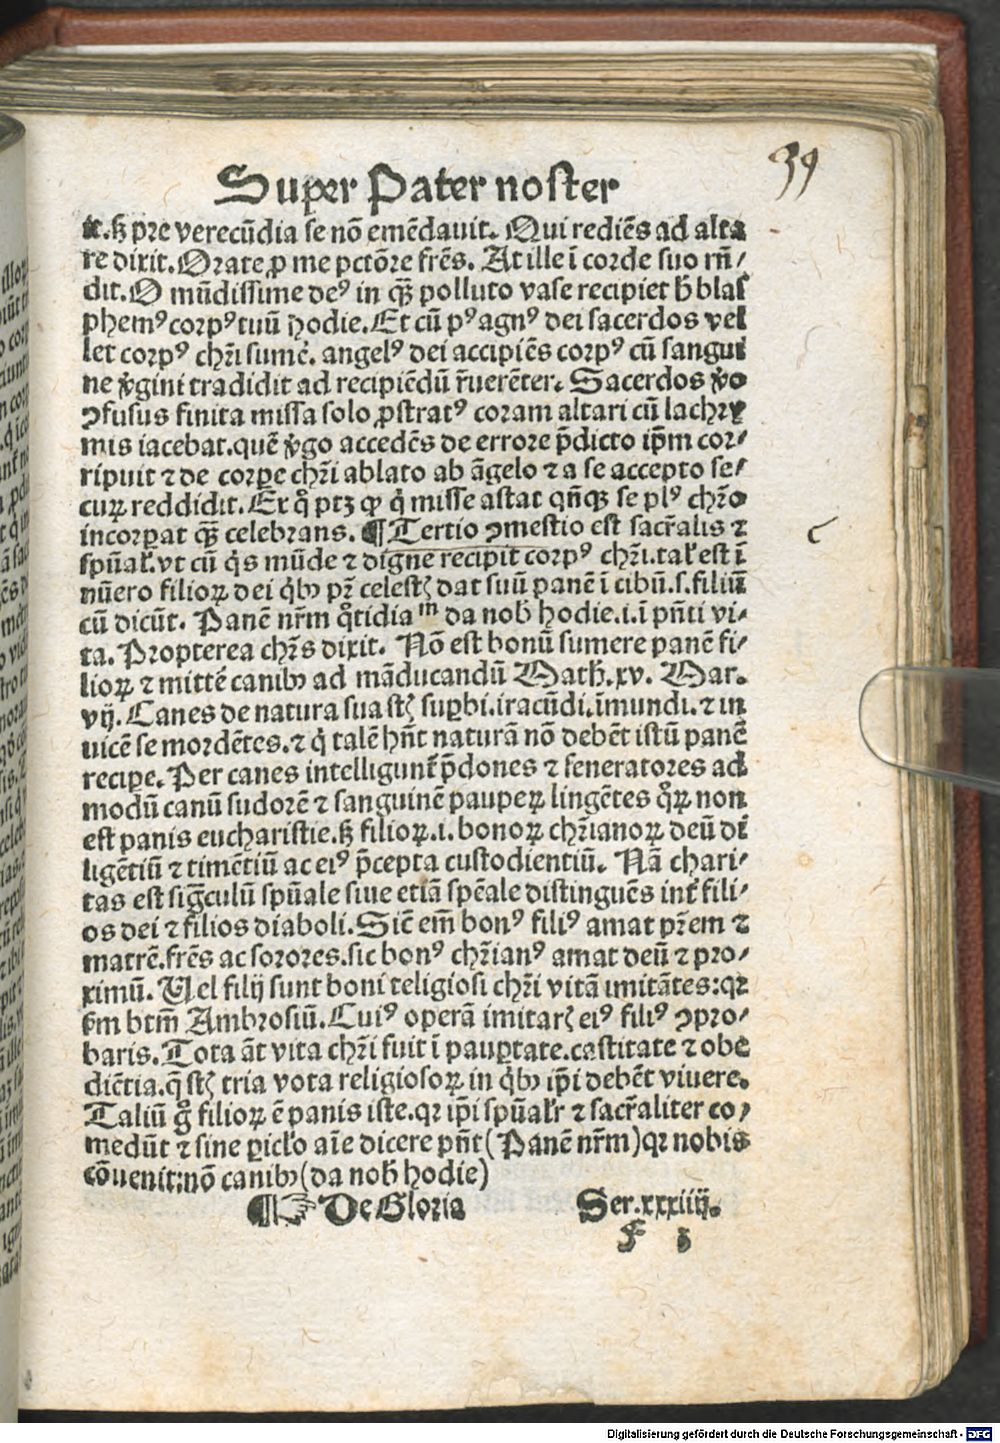 39
Super Pater noster
it. sꝫ pre verecūdia se nō emēdauit. Qui rediēs ad alta
re dixit. Orate ꝓ me pctōre frēs. At ille ī corde suo rn̄/
dit. O mūdissime deꝰ in qꝫ polluto vase recipiet h̄ blas
phemꝰ corpꝰ tuū hodie. Et cū pꝰ agnꝰ dei sacerdos vel
let corpꝰ chr̄i sumē. angelꝰ dei accipiēs corpꝰ cū sangui
ne v̓gini tradidit ad recipiēdū r̄uerēter. Sacerdos v̓o
ꝯfusus finita missa solo ꝓstratꝰ coram altari cū lachry
mis iacebat. quē v̓go accedēs de errore p̄dicto ip̄m cor/
ripuit ⁊ de corpe chr̄i ablato ab āgelo ⁊ a se accepto se/
curꝝ reddidit. Ex qͦ ptꝫ ꝙ qͥ misse astat qn̄qꝫ se plꝰ chr̄o
incorꝑat qꝫ celebrans. ¶ Tertio ꝯmestio est sacr̄alis ⁊
c
spūal̓. vt cū qͥs mūde ⁊ digne recipit corpꝰ chr̄i. tal̓ est ī
nūero filioꝝ dei qͥbꝫ pr̄ celestꝭ dat suū panē ī cibū .s. filiū
cū dicūt. Panē nr̄m qͦtidia m̄ da nob̄ hodie .i. ī pn̄ti vi/
ta. Propterea chr̄s dixit. Nō est bonū sumere panē fi/
lioꝝ ⁊ mittē canibꝫ ad māducandū Math̄. xv. Mar.
vij. Canes de natura sua stꝭ suꝑbi. iracūdi. īmundi. ⁊ in
uicē se mordētes. ⁊ qͥ talē hn̄t naturā nō debēt istū panē
recipe. Per canes intelligunt̓ p̄dones ⁊ feneratores ad
modū canū sudorē ⁊ sanguinē paupeꝝ lingētes qͦꝝ non
est panis eucharistie. sꝫ filioꝝ .i. bonoꝝ chr̄ianoꝝ deū di
ligētiū ⁊ timētiū ac eiꝰ p̄cepta custodientiū. Nā chari/
tas est sig̅culū spūale siue etiā spēale distinguēs int̓ fili/
os dei ⁊ filios diaboli. Sic̄ em̄ bonꝰ filiꝰ amat pr̄em ⁊
matrē. frēs ac sorores. sic bonꝰ chr̄ianꝰ amat deū ⁊ pro/
ximū. Uel filij sunt boni religiosi chr̄i vitā imitātes: qꝛ
ẜm btm̄ Ambrosiū. Cuiꝰ operā imitarꝭ eiꝰ filiꝰ ꝯpro/
baris. Tota āt vita chr̄i fuit ī pauꝑtate. castitate ⁊ obe
diētia. q̄ stꝭ tria vota religiosoꝝ in qͥbꝫ ip̄i debēt viuere.
Taliū gͦ filioꝝ ē panis iste. qꝛ ip̄i spūal̓r ⁊ sacr̄aliter co/
medūt ⁊ sine ꝑicl̓o aīe dicere pn̄t (Panē nr̄m) qꝛ nobis
cōuenit: nō canibꝫ (da nob̄ hodie)
¶ ☞ De Gloria Ser. xxxiiij.
f 5
Digitalisierung gefördert durch die Deutsche Forschungsgemeinschaft - DFG